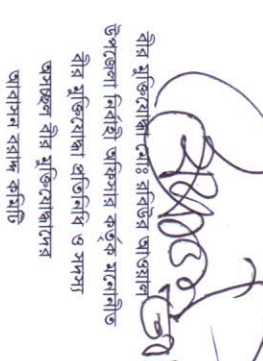 বীর মুক্তিযোদ্ধা মোঃ রবিউল আওয়াল
উপজেলা নির্বাহী অফিসার কর্তৃক মনোনিত
বীর মুক্তিযোদ্ধা প্রতিনিধি ও সদস্য
অসচ্ছল বীর মুক্তিযোদ্ধাদের
আবাসন বরাদ্দ কমিটি